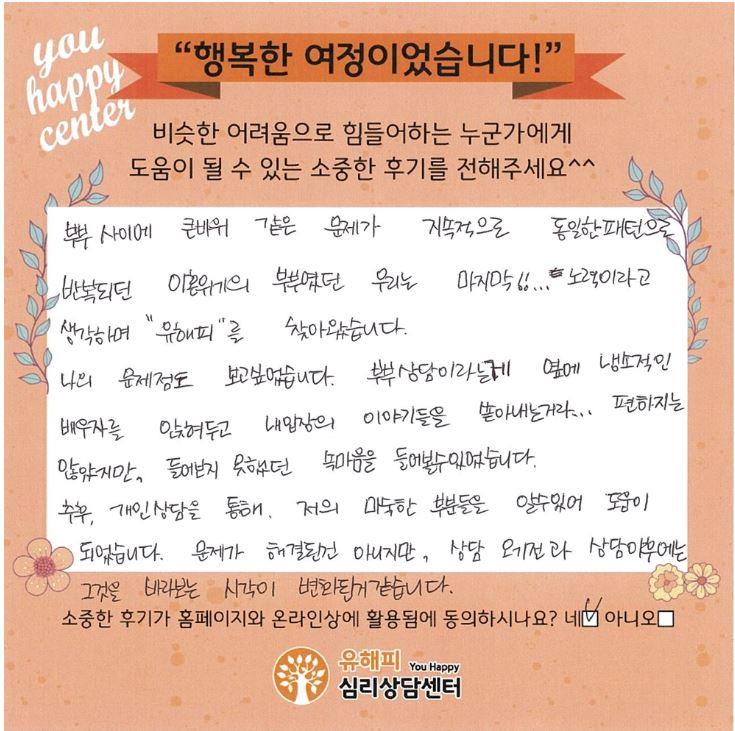 you
happy
center
“행복한 여정이었습니다!”
비슷한 어려움으로 힘들어하는 누군가에게
도움이 될 수 있는 소중한 후기를 전해주세요^^
부부 사이에 큰바위 같은 문제가 지속적으로 동일한패턴으로
반복되던 이혼위기의 부부였던 우리는 마지막!!... 노력이라고
생각하며 "유해피"를 찾아왔습니다.
나의 문제점도 보고싶었습니다. 부부상담이라는게 옆에 냉소적인
배우자를 앉혀두고 내입장의 이야기들을 쏟아내는거라... 편하지는
않았지만, 들어보지 못했던 속마음을 들어볼수있었습니다.
추후, 개인상담을 통해. 저의 미숙한 부분들을 알수있어 도움이
되었습니다. 문제가 해결된건 아니지만, 상담 오기전과 상담이후에는
그것을 바라보는 시각이 변화된거같습니다.
소중한 후기가 홈페이지와 온라인상에 활용됨에 동의하시나요? 네☑ 아니오□
유해피 You Happy
심리상담센터